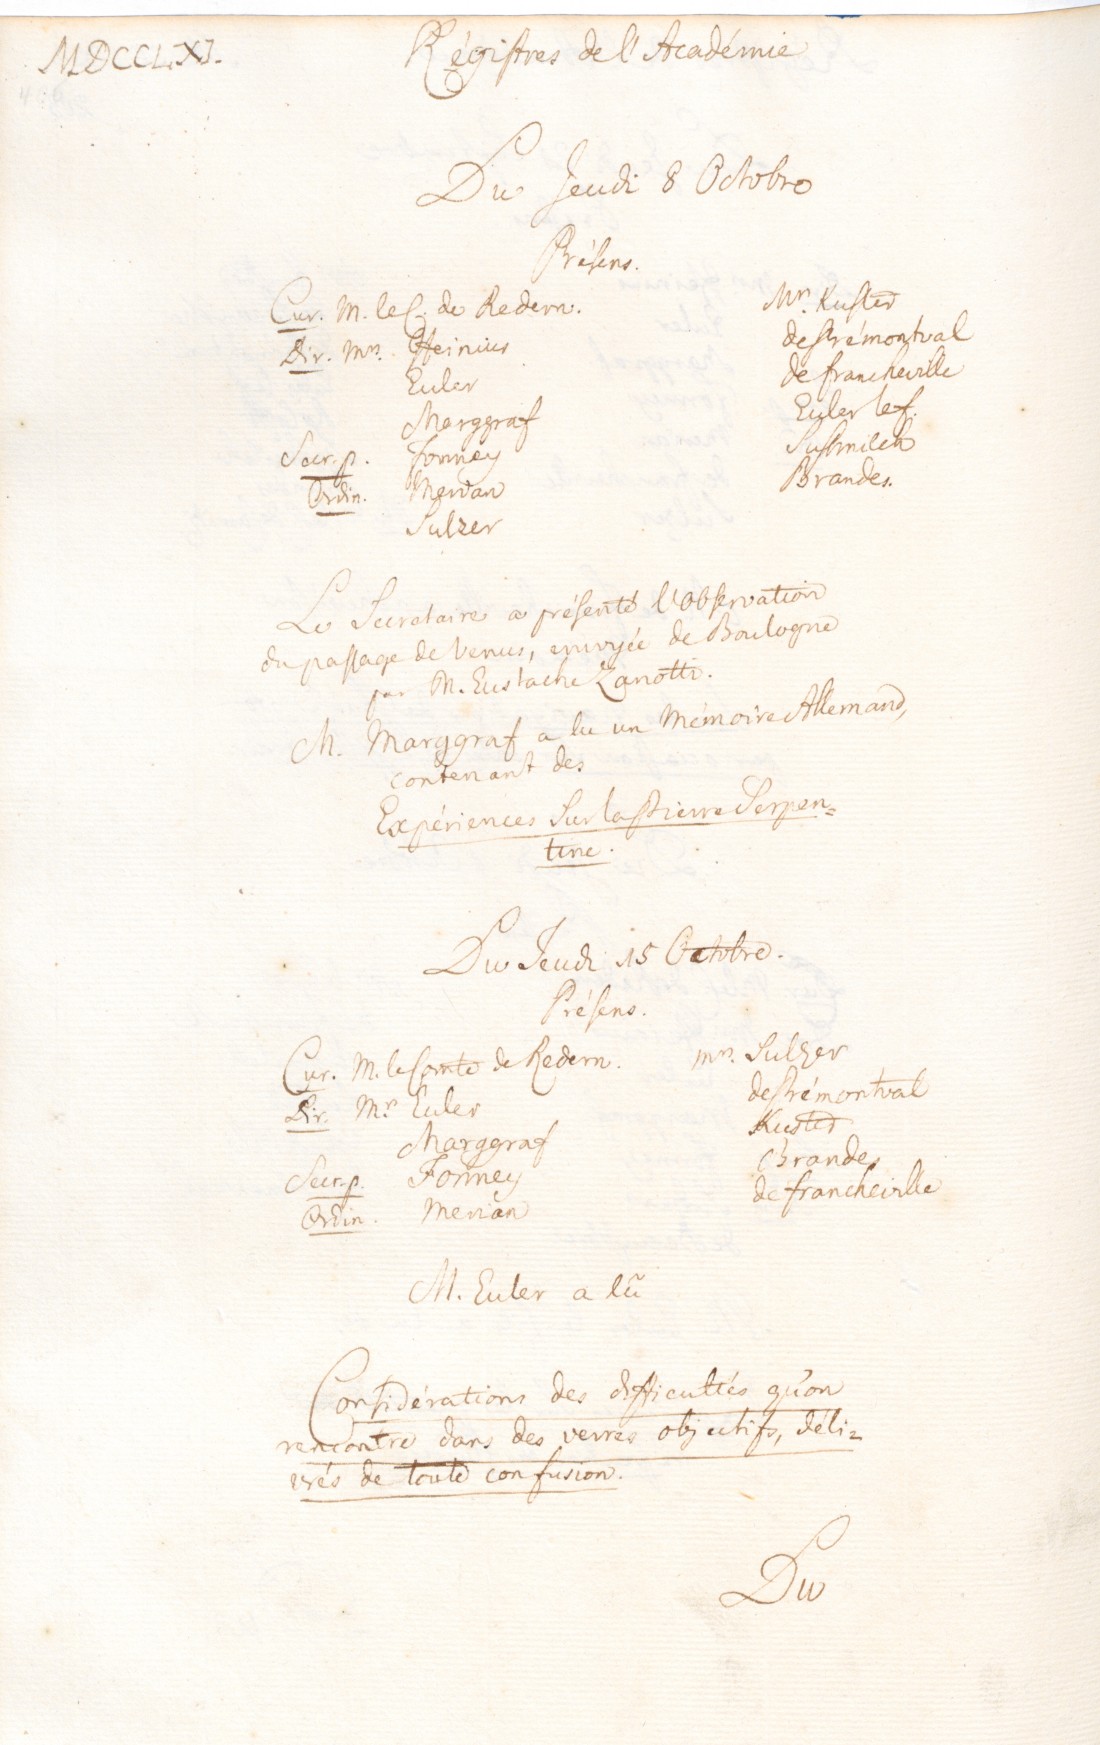 MDCCLXI.
Régistres de l'Académie
Du Jeudi 8 Octobre
Présens.
Cur. M. le C. de Redern.
Dir. Mrs. Heinius
Euler
Marggraf
Secr. p. Formey
Ordin. Merian
Sulzer
Mrs. Kuster
de Prémontval
de Francheville
Euler le f.
Susmilch
Brandes.
Le Secretaire a présenté l'Observation
du passage de Venus, envoyée de Boulogne
par M. Eustache Zanotti.
M. Marggraf a lu un Mémoire Allemand,
contenant des
Expériences sur la Pierre Serpen=
tine.
Du Jeudi 15 Octobre.
Présens.
Cur. M. le Comte de Redern.
Dir. Mrs Euler
Marggraf
Secr. p. Formey
Ordin. Merian
Mrs. Sulzer
de Prémontval
Kuster
Brandes
de Francheville
M. Euler a lû
Considérations des difficultés qu'on
rencontre dans des verres objectifs, déli=
vrés de toute confusion.
Du